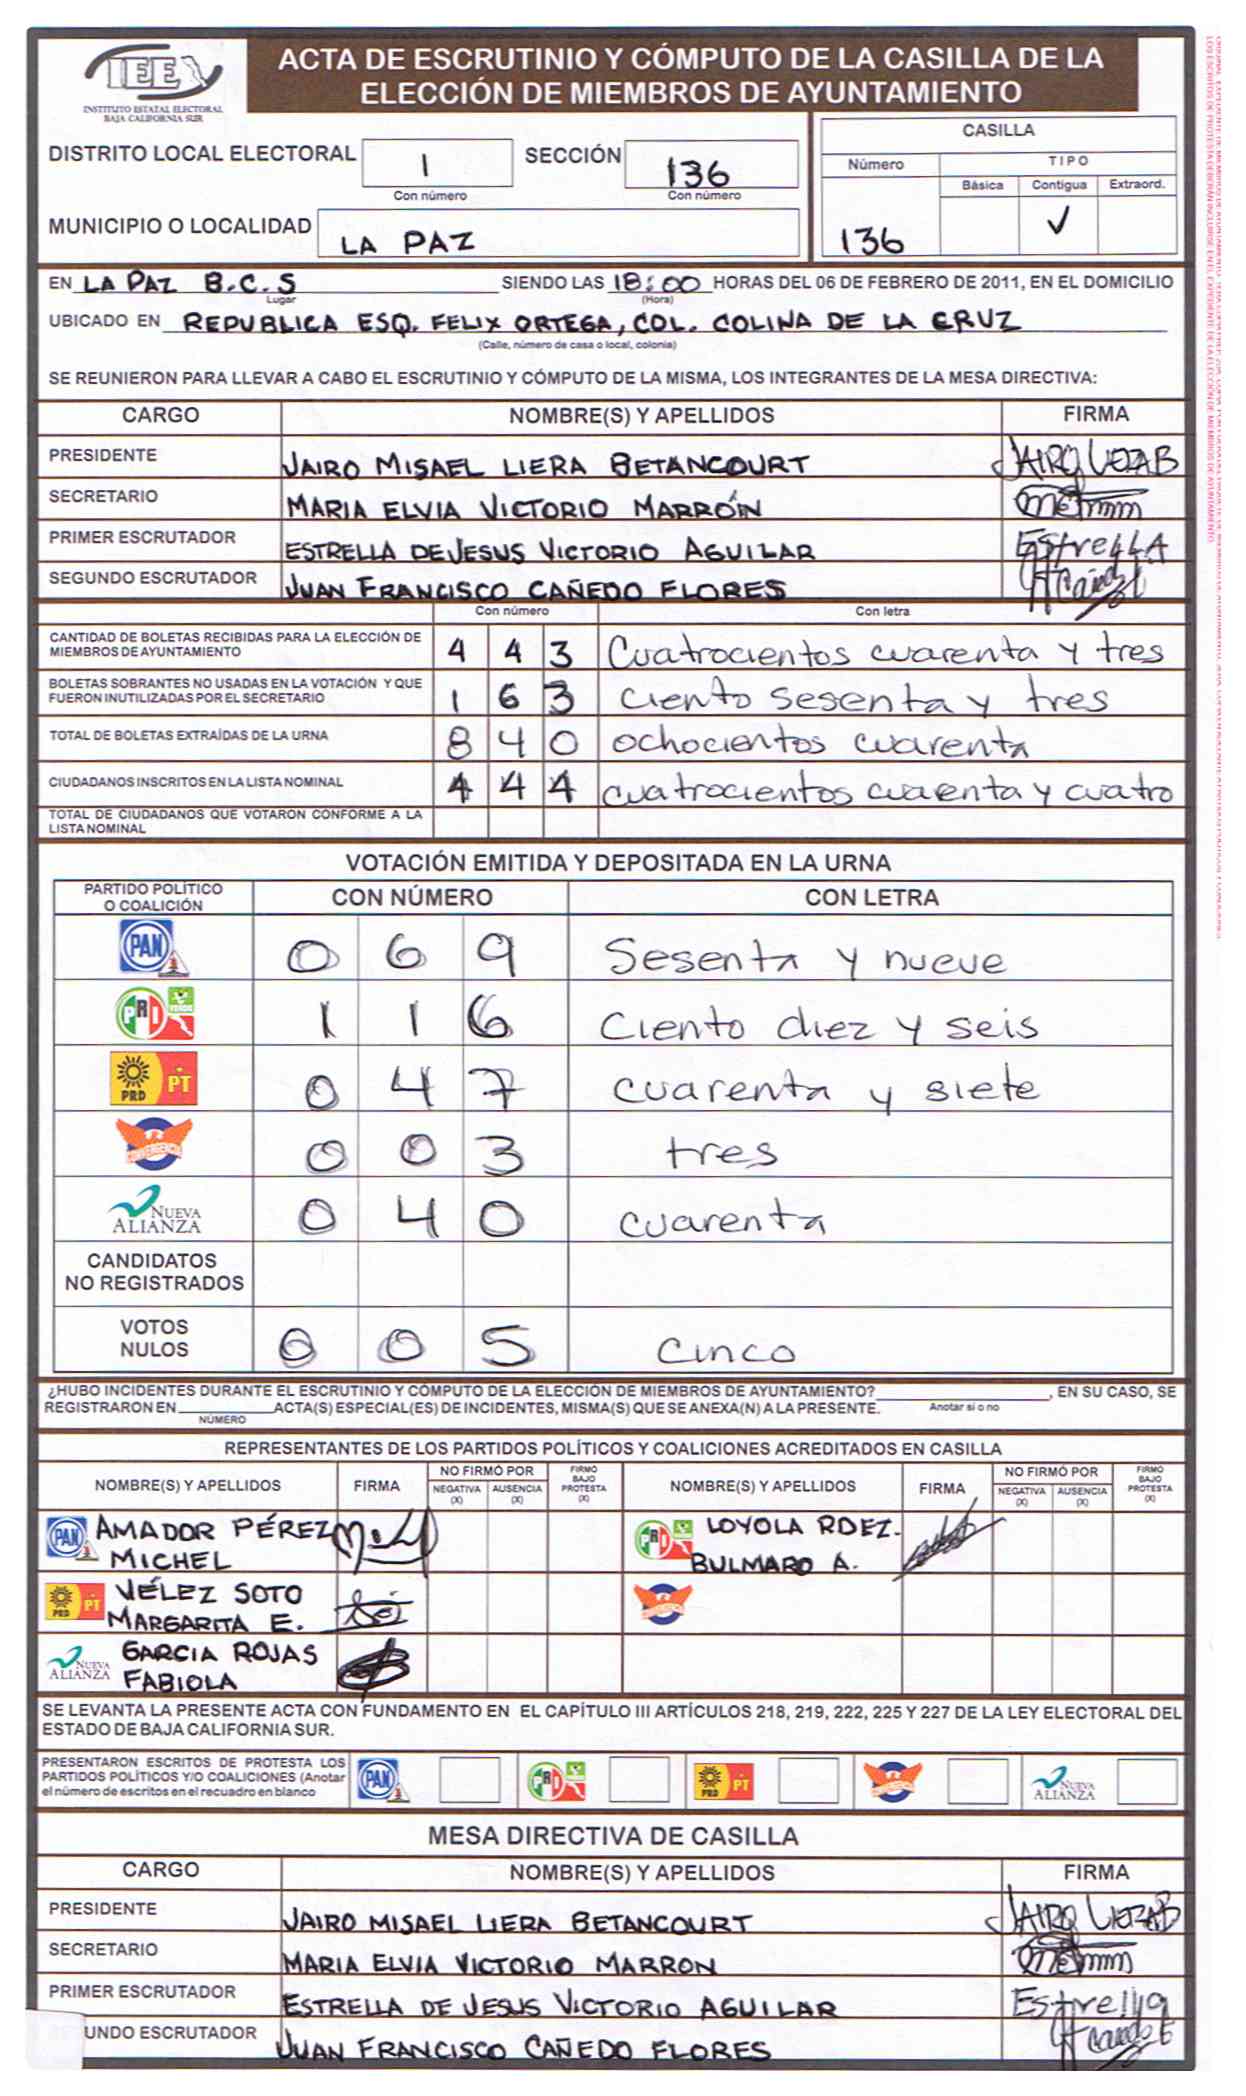 IEE
INSTITUTO ESTATAL ELECTORAL
BAJA CALIFORNIA SUR
ACTA DE ESCRUTINIO Y CÓMPUTO DE LA CASILLA DE LA
ELECCIÓN DE MIEMBROS DE AYUNTAMIENTO
DISTRITO LOCAL ELECTORAL 1 SECCIÓN 136
Con número Con número
MUNICIPIO O LOCALIDAD LA PAZ
CASILLA
Número TIPO
Básica Contigua Extraord.
136 ✓
EN LA PAZ B.C.S SIENDO LAS 18:00 HORAS DEL 06 DE FEBRERO DE 2011, EN EL DOMICILIO
Lugar (Hora)
UBICADO EN REPUBLICA ESQ. FELIX ORTEGA, COL. COLINA DE LA CRUZ
(Calle, número de casa o local, colonia)
SE REUNIERON PARA LLEVAR A CABO EL ESCRUTINIO Y CÓMPUTO DE LA MISMA, LOS INTEGRANTES DE LA MESA DIRECTIVA:
CARGO NOMBRE(S) Y APELLIDOS FIRMA
PRESIDENTE JAIRO MISAEL LIERA BETANCOURT
SECRETARIO MARIA ELVIA VICTORIO MARRÓN
PRIMER ESCRUTADOR ESTRELLA DE JESUS VICTORIO AGUILAR Estrella
SEGUNDO ESCRUTADOR JUAN FRANCISCO CAÑEDO FLORES
Con número Con letra
CANTIDAD DE BOLETAS RECIBIDAS PARA LA ELECCIÓN DE
MIEMBROS DE AYUNTAMIENTO 4 4 3 Cuatrocientos cuarenta y tres
BOLETAS SOBRANTES NO USADAS EN LA VOTACIÓN Y QUE
FUERON INUTILIZADAS POR EL SECRETARIO 1 6 3 ciento sesenta y tres
TOTAL DE BOLETAS EXTRAÍDAS DE LA URNA 8 4 0 ochocientos cuarenta
CIUDADANOS INSCRITOS EN LA LISTA NOMINAL 4 4 4 cuatrocientos cuarenta y cuatro
TOTAL DE CIUDADANOS QUE VOTARON CONFORME A LA
LISTA NOMINAL
VOTACIÓN EMITIDA Y DEPOSITADA EN LA URNA
PARTIDO POLÍTICO
O COALICIÓN CON NÚMERO CON LETRA
PAN 0 6 9 Sesenta y nueve
PRI VERDE 1 1 6 Ciento diez y seis
PRD PT 0 4 7 cuarenta y siete
CONVERGENCIA 0 0 3 tres
NUEVA ALIANZA 0 4 0 cuarenta
CANDIDATOS
NO REGISTRADOS
VOTOS
NULOS 0 0 5 cinco
¿HUBO INCIDENTES DURANTE EL ESCRUTINIO Y CÓMPUTO DE LA ELECCIÓN DE MIEMBROS DE AYUNTAMIENTO? , EN SU CASO, SE
REGISTRARON EN ACTA(S) ESPECIAL(ES) DE INCIDENTES, MISMA(S) QUE SE ANEXA(N) A LA PRESENTE. Anotar si o no
NÚMERO
REPRESENTANTES DE LOS PARTIDOS POLÍTICOS Y COALICIONES ACREDITADOS EN CASILLA
NOMBRE(S) Y APELLIDOS FIRMA NO FIRMÓ POR NEGATIVA (X) AUSENCIA (X) FIRMÓ BAJO PROTESTA (X) NOMBRE(S) Y APELLIDOS FIRMA NO FIRMÓ POR NEGATIVA (X) AUSENCIA (X) FIRMÓ BAJO PROTESTA (X)
PAN AMADOR PÉREZ PRI LOYOLA RDEZ.
MICHEL BULMARO A.
PRD PT VÉLEZ SOTO CONVERGENCIA
MARGARITA E.
NUEVA ALIANZA GARCIA ROJAS
FABIOLA
SE LEVANTA LA PRESENTE ACTA CON FUNDAMENTO EN EL CAPÍTULO III ARTÍCULOS 218, 219, 222, 225 Y 227 DE LA LEY ELECTORAL DEL
ESTADO DE BAJA CALIFORNIA SUR.
PRESENTARON ESCRITOS DE PROTESTA LOS
PARTIDOS POLÍTICOS Y/O COALICIONES (Anotar
el número de escritos en el recuadro en blanco PAN PRI PRD PT CONVERGENCIA NUEVA ALIANZA
MESA DIRECTIVA DE CASILLA
CARGO NOMBRE(S) Y APELLIDOS FIRMA
PRESIDENTE JAIRO MISAEL LIERA BETANCOURT
SECRETARIO MARIA ELVIA VICTORIO MARRON
PRIMER ESCRUTADOR ESTRELLA DE JESUS VICTORIO AGUILAR Estrella
UNDO ESCRUTADOR JUAN FRANCISCO CAÑEDO FLORES